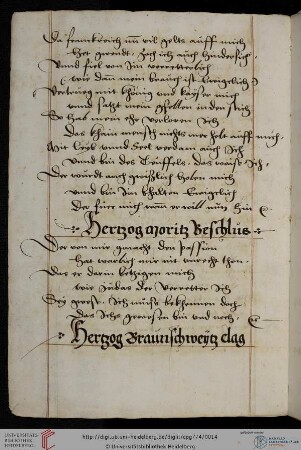 Da franckreich mi vil gelts auff mich
Het gewendt, Zoch ich auch hindersich,
Unnd fiel von Im verretterlich
wie dan mein brauch ist ewigclich
Vertrieg mit khönig und kayser mich
unnd satzt mein gsellen in den stich
So hab mein ehr verloren Ich
Das khain mensch nichts mer helt auff mich,
Mit Leyb unnd Seel verdam auch Ich
Unnd bin des Teuffels, das waiss Ich,
Der würdt auch grüslich holen mich
unnd bin Im bhalten Ewigclich
Der füer mich wan er will nur hin
Hertzog Moritz Beschlus
Der von mir gemacht den passum
hat warlich mir nit unrecht thon
Das er darin bezigen mich
wie Judas der verretter Ich
Sey gwest. Ich mues bekhennen doch
das Ichs gwesen bin und noch
Hertzog Braunschweytz clag
UNIVERSITÄTS-
BIBLIOTHEK
HEIDELBERG
http://digi.ub.uni-heidelberg.de/diglit/cpg774/0014
© Universitätsbibliothek Heidelberg